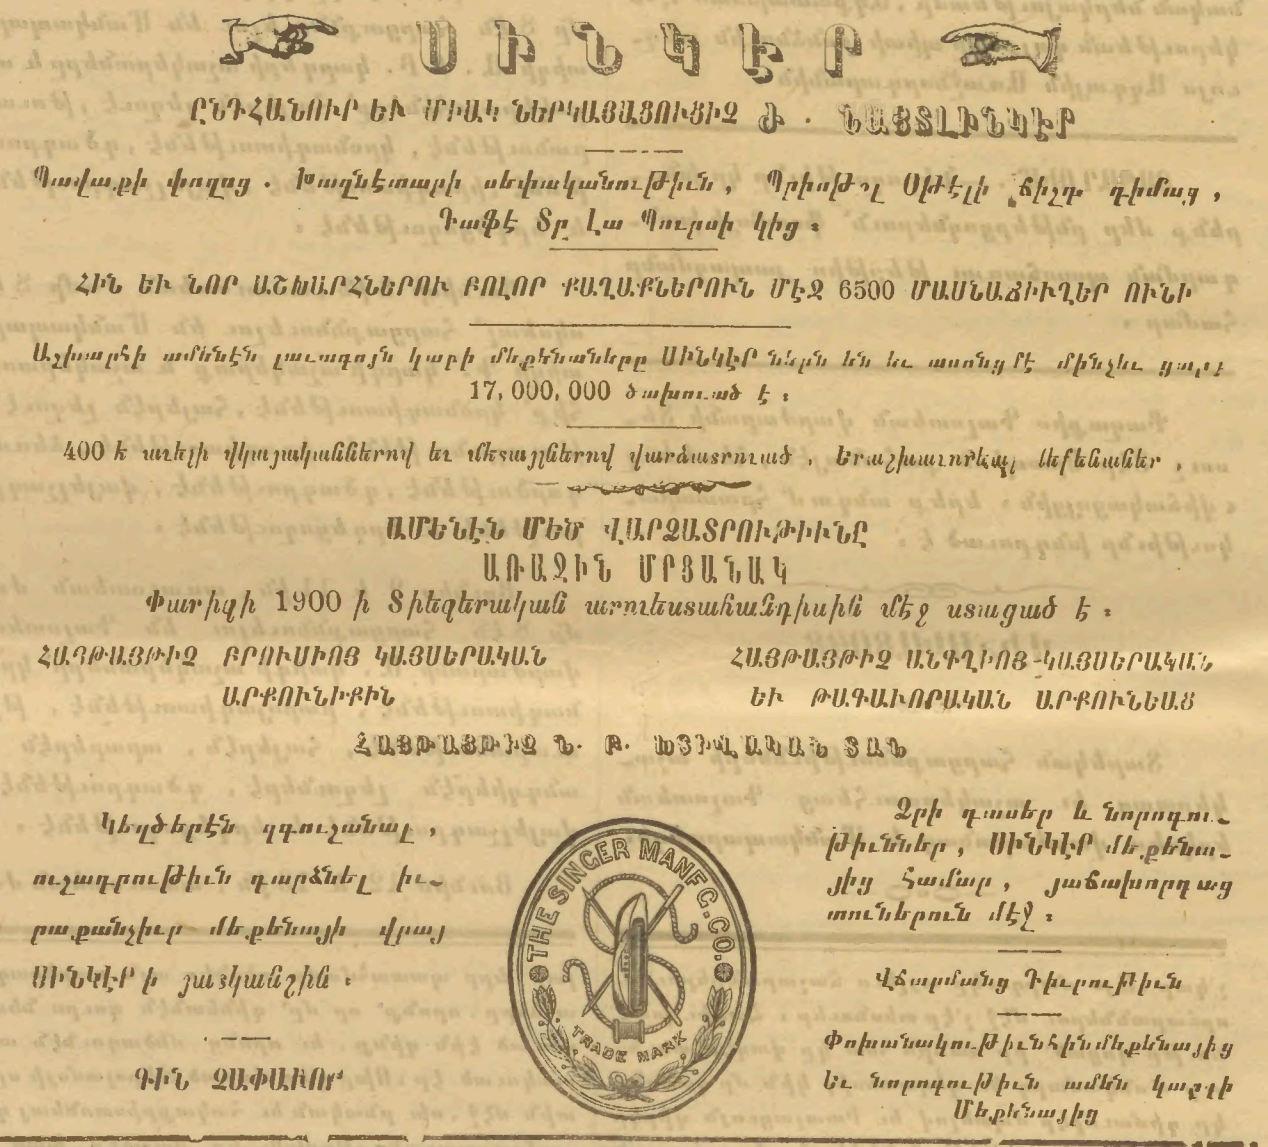 ՍԻՆԿԷՐ
ԸՆԴՀԱՆՈՒՐ ԵՒ ՄԻԱԿ ՆԵՐԿԱՅԱՑՈՒՑԻՉ Ժ. ՆԱՅՏԼԻՆԿԷՐ
Պավաքի փողոց. Խազնէտարի սեփականութիւն, Պրիսթօլ Օթէլի ճիշդ դիմաց,
Գաֆէ Տը Լա Պուրսի կից:
ՀԻՆ ԵՒ ՆՈՐ ԱՇԽԱՐՀՆԵՐՈՒ ԲՈԼՈՐ ՔԱՂԱՔՆԵՐՈՒՆ ՄԷՋ 6500 ՄԱՍՆԱՃԻՒՂԵՐ ՈՒՆԻ
Աշխարհի ամենէն լաւագոյն կարի մեքենաները ՍԻՆԿԷՐ ներն են եւ ասոնցմէ մինչեւ ցարդ
17,000,000 ծախուած է:
400 է աւելի վկայականներով եւ մետայլներով վարձատրուած, Երաշխաւորեալ Մեքենաներ,
ԱՄԵՆԷՆ ՄԵԾ ՎԱՐՁԱՏՐՈՒԹԻՒՆԸ
ԱՌԱՋԻՆ ՄՐՑԱՆԱԿ
Փարիզի 1900 ի Տիեզերական արուեստահանդիսին մէջ ստացած է:
ՀԱՅԹԱՅԹԻՉ ԲՐՈՒՍԻՈՅ ԿԱՅՍԵՐԱԿԱՆ
ԱՐՔՈՒՆԻՔԻՆ
ՀԱՅԹԱՅԹԻՉ ԱՆԳՂԻՈՅ ԿԱՅՍԵՐԱԿԱՆ
ԵՒ ԹԱԳԱՒՈՐԱԿԱՆ ԱՐՔՈՒՆԵԱՑ
ՀԱՅԹԱՅԹԻՉ Ն. Բ. ԽՏԻՎԱԿԱՆ ՏԱՆ
Կեղծերէն զգուշանալ,
ուշադրութիւն դարձնել իւ-
րաքանչիւր մեքենայի վրայ
ՍԻՆԿԷՐ ի յատկանշին:
ԳԻՆ ՉԱՓԱՒՈՐ
THE SINGER MANFG. CO.
TRADE MARK
Ձրի դասեր և նորոգու-
թիւններ, ՍԻՆԿԷՐ մեքենա-
յից համար, յաճախորդաց
տուներուն մէջ:
Վճարմանց Դիւրութիւն
Փոխանակութիւն հին մեքենայից
Եւ նորոգութիւն ամեն կարգի
Մեքենայից